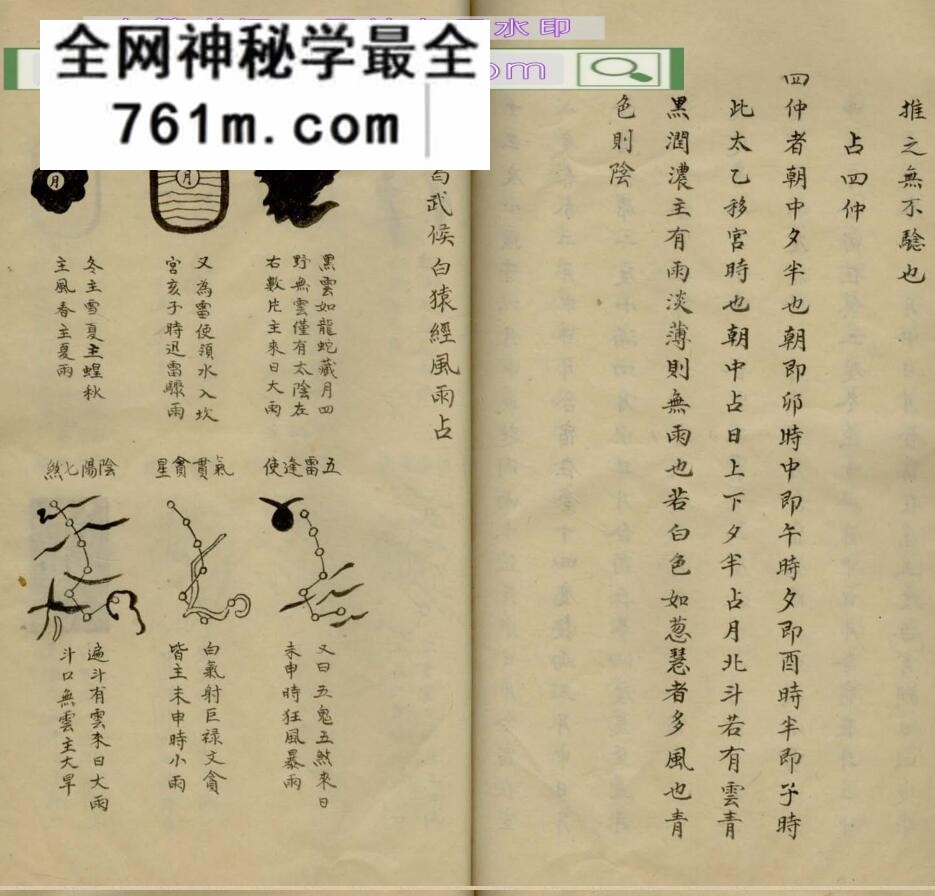 全网神秘学最全
761m.com
水印
om
推之無不驗也
占四仲
四仲者朝中夕半也朝即卯時中即午時夕即酉時半即子時
此太乙移宮時也朝中占日上下夕半占月北斗若有雲青
黑潤濃主有雨淡薄則無雨也若白色如葱慧者多風也青
色則陰
武候白猿經風雨占
黑雲如龍蛇藏月四
野無雲僅有太陰左
右數片主來日大雨
月
又為雷使領水入坎
宮亥子時迅雷驟雨
月
冬主雪夏主蝗秋
主風春主夏雨
五雷逢使
又曰五鬼五煞來日
未申時狂風暴雨
氣貫貪星
白氣射巨祿文貪
皆主未申時小雨
陰陽七煞
遍斗有雲來日大雨
斗口無雲主大旱